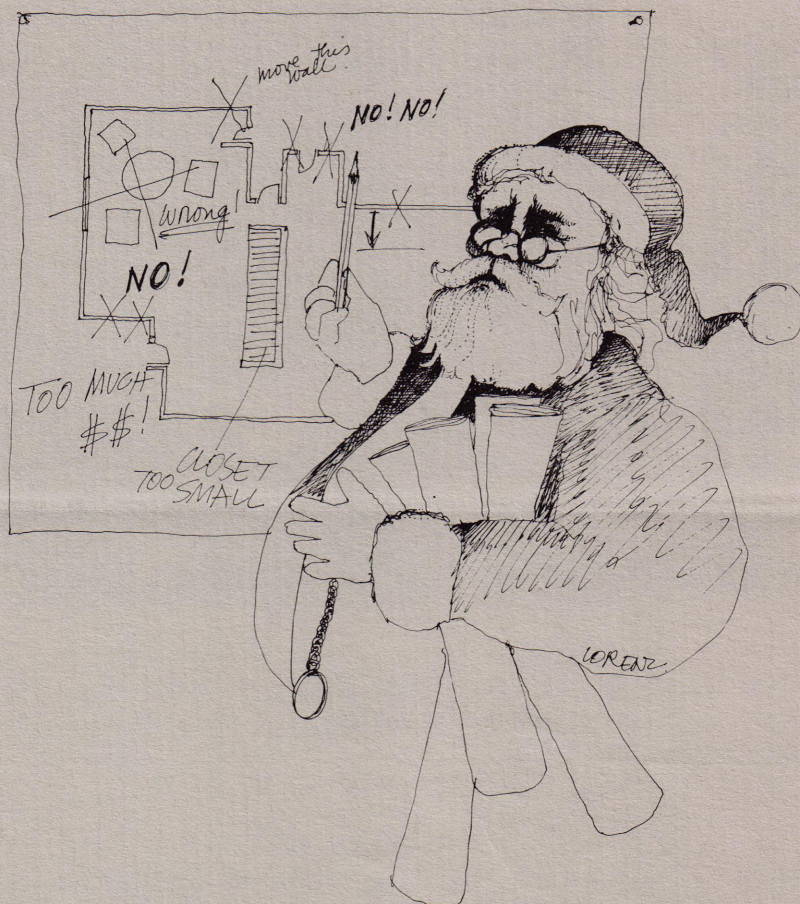 move this
wall.
NO! NO!
wrong!
NO!
TOO MUCH
$$!
CLOSET
TOO SMALL
LORENZ